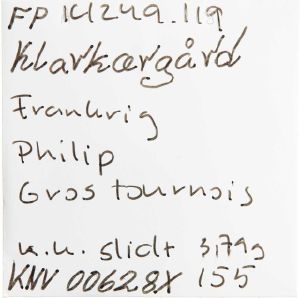 FP 141249.119
Klarkærgård
Frankrig
Philip
Gros tournois
u.u. slidt 3,79g
KNV 00628X 155